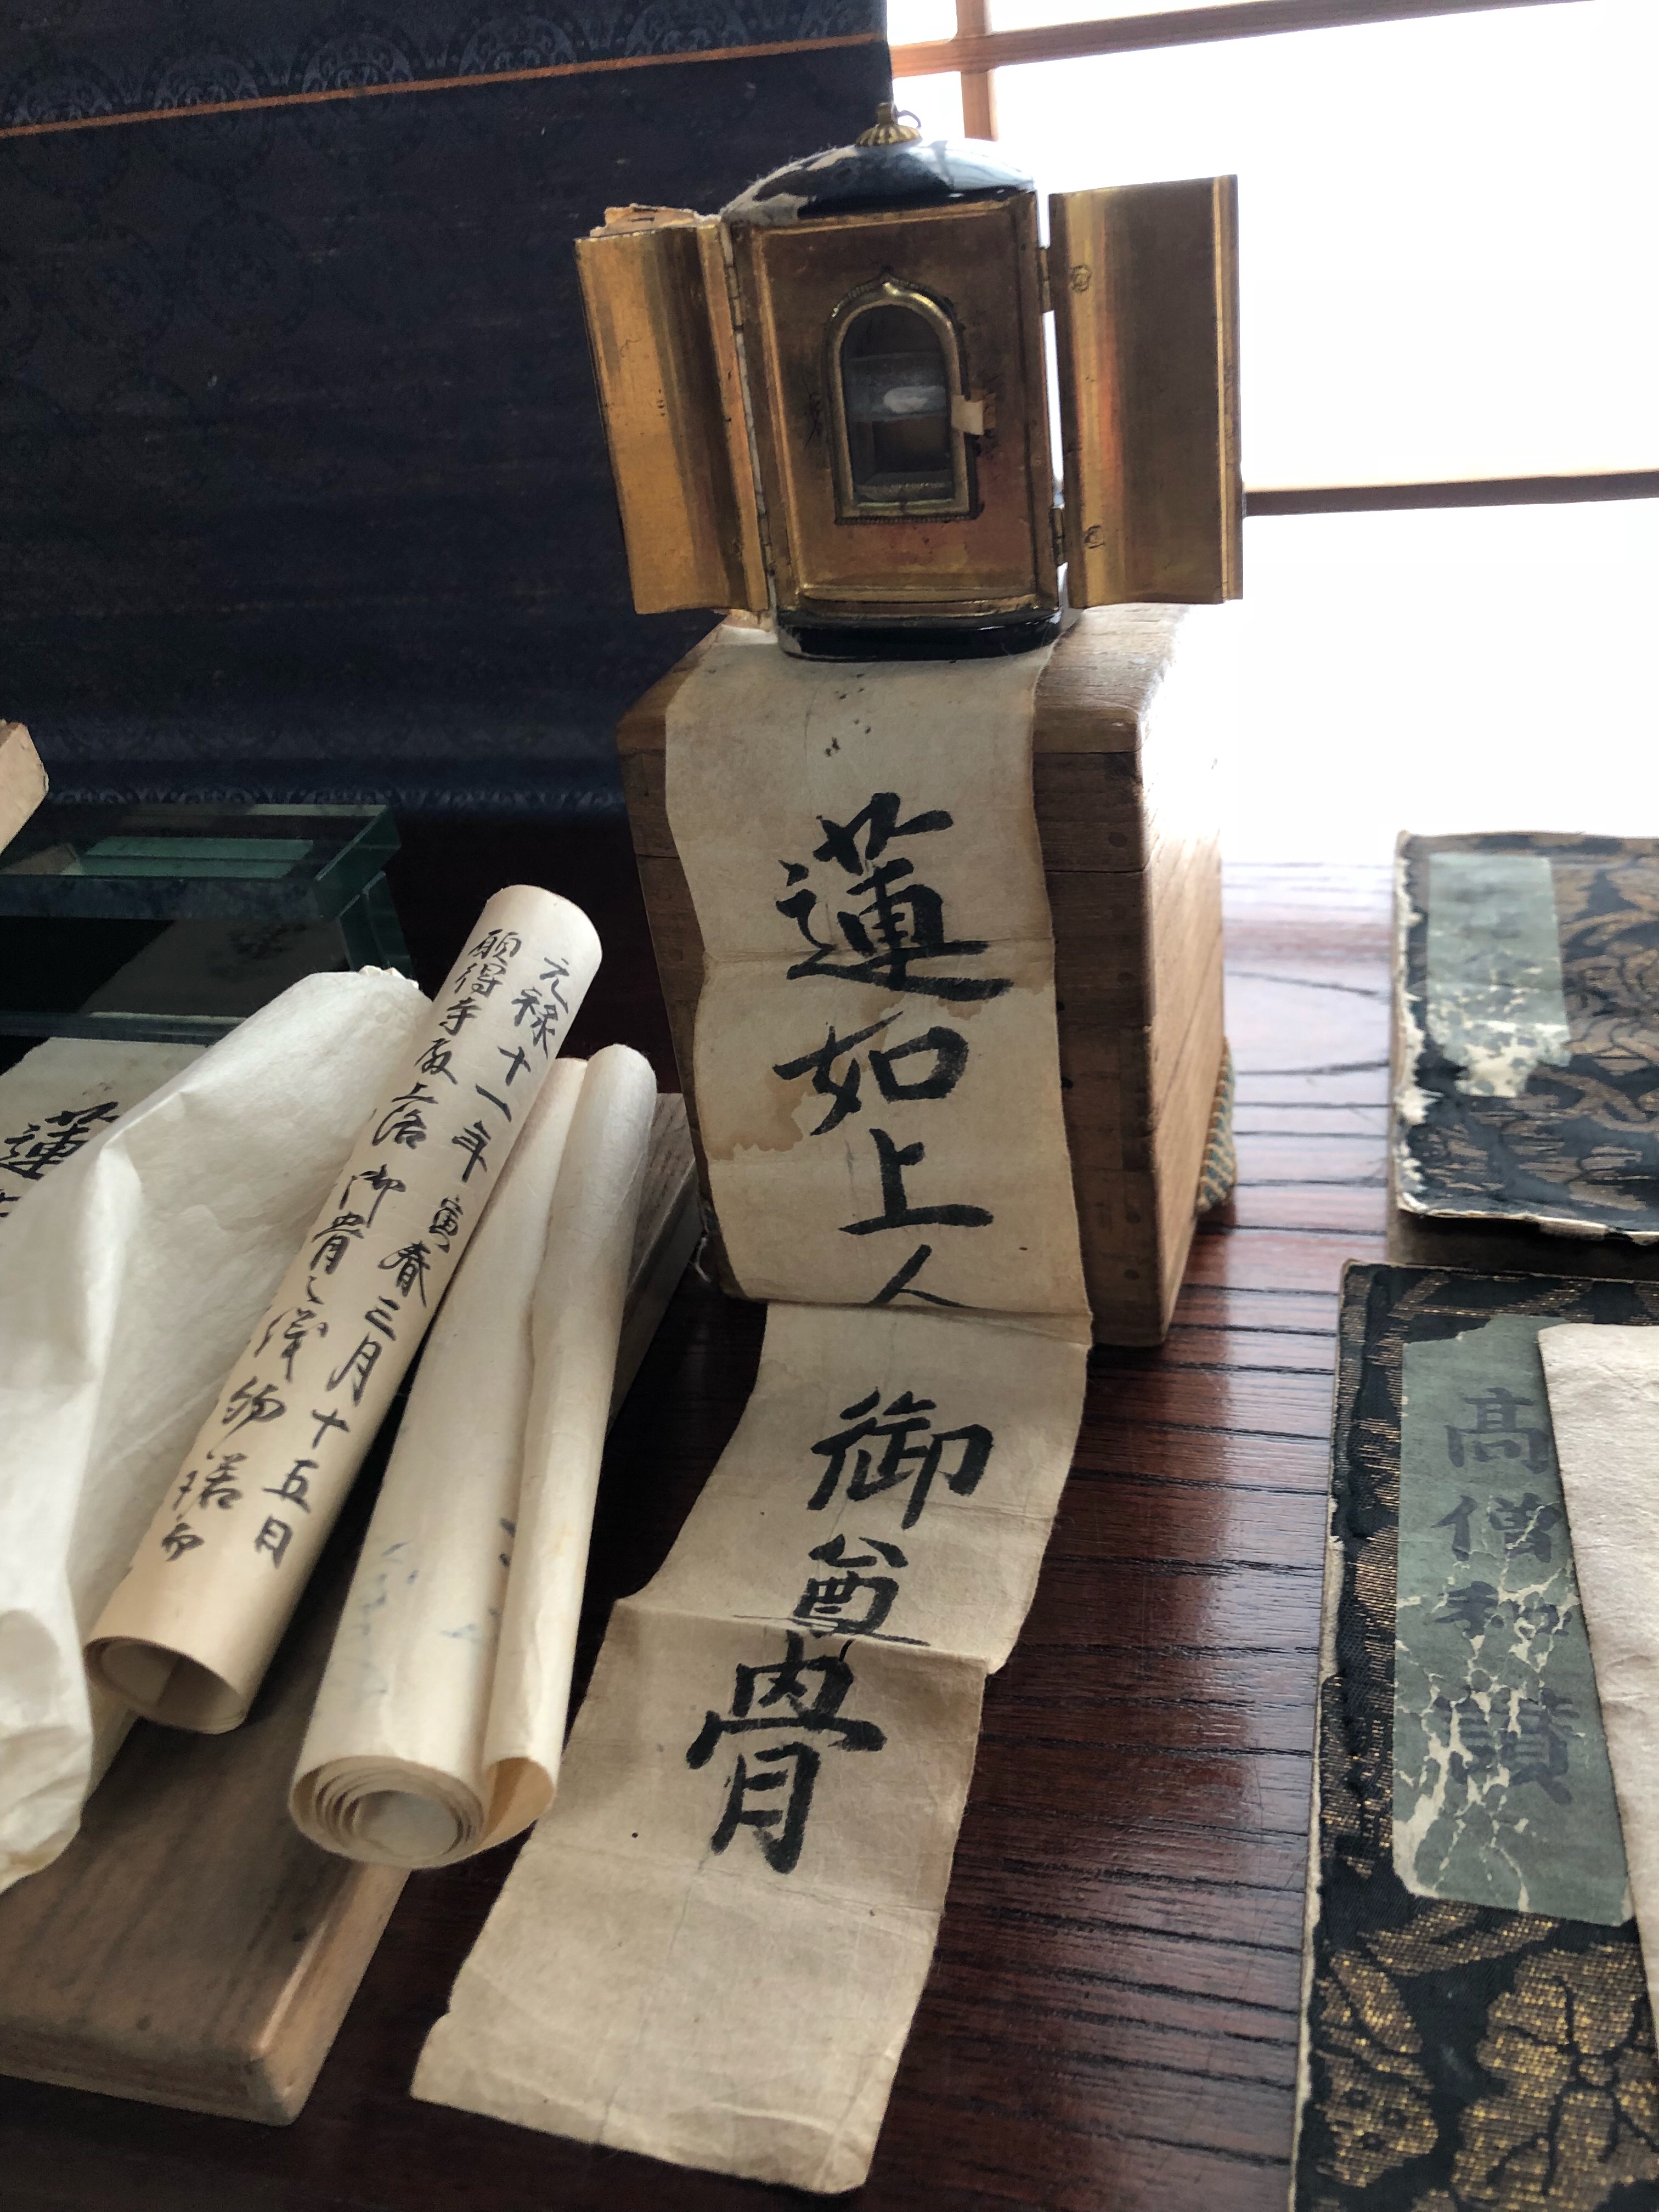 蓮如上人
御尊骨
元禄十一年寅春三月十五日
願得寺殿上洛 御骨之
高僧和讃
蓮